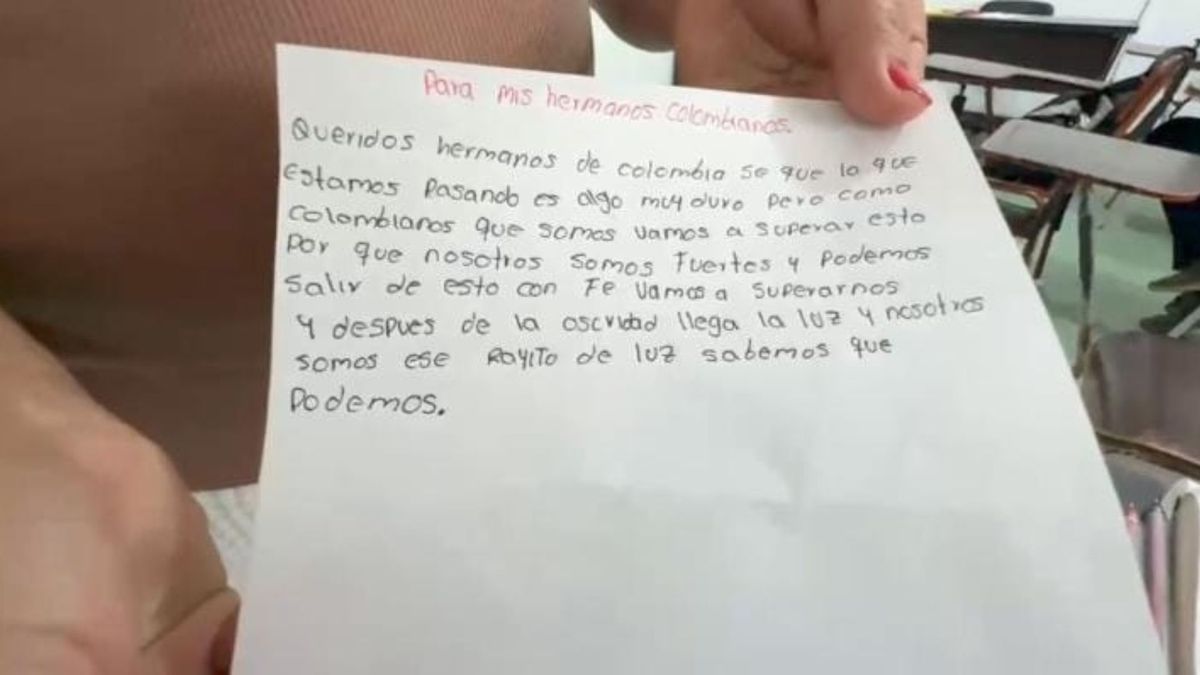 Para mis hermanos colombianos.
Queridos hermanos de colombia se que lo que
Estamos pasando es algo muy duro pero como
colombianos que somos vamos a superar esto
por que nosotros somos fuertes y podemos
salir de esto con Fe vamos a superarnos
y despues de la oscridad llega la luz y nosotros
somos ese Rayito de luz sabemos que
podemos.